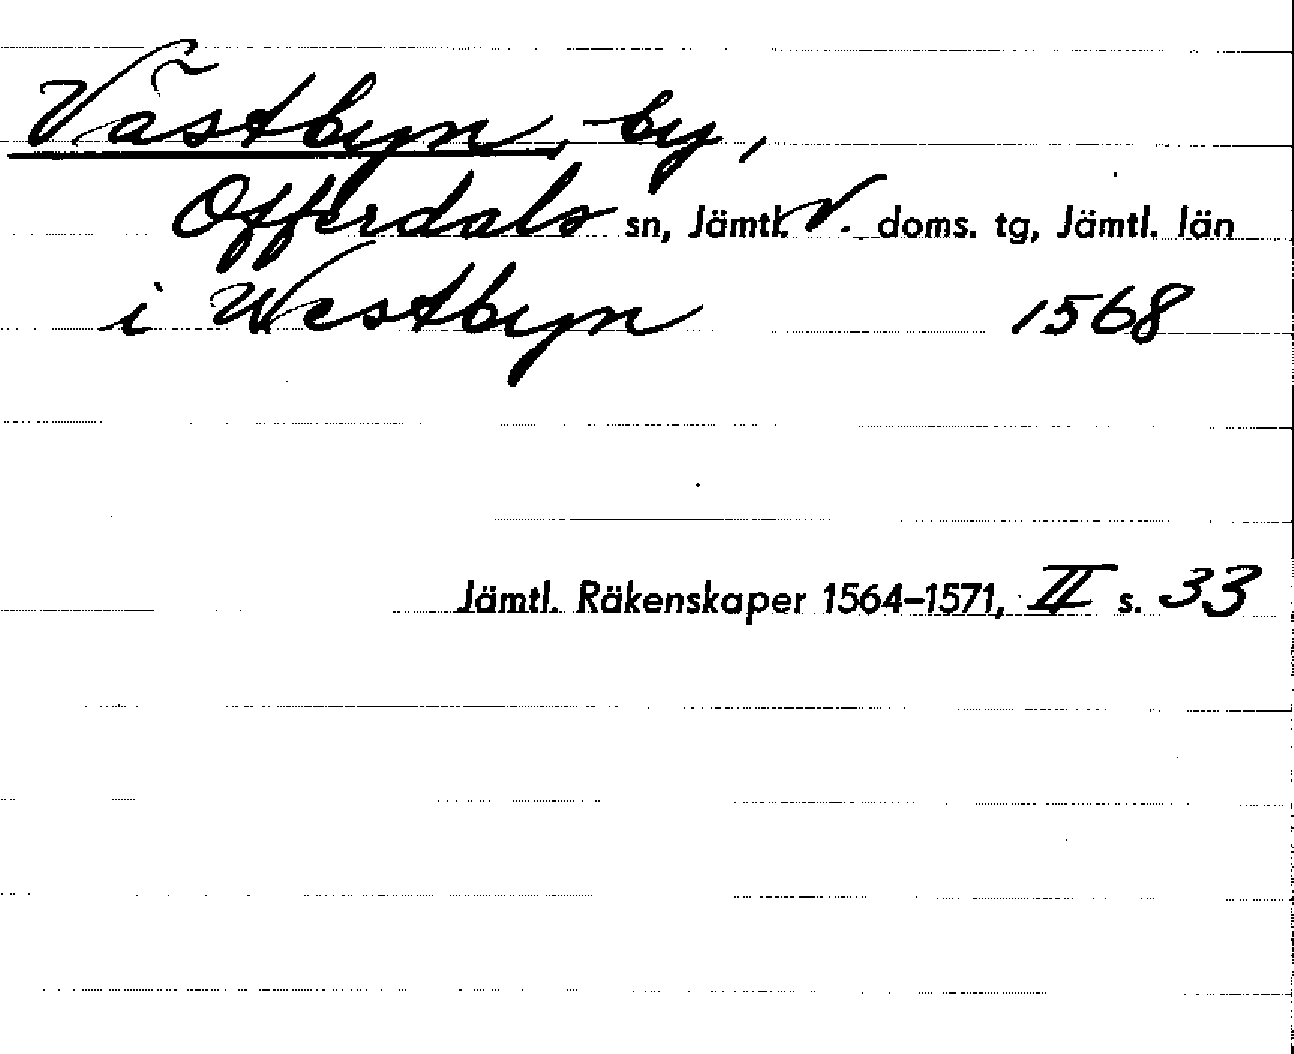 Västbyn, by,
Offerdals sn, Jämtl. V. doms. tg, Jämtl. län
i Westbyn 1568
Jämtl. Räkenskaper 1564-1571, II s. 33